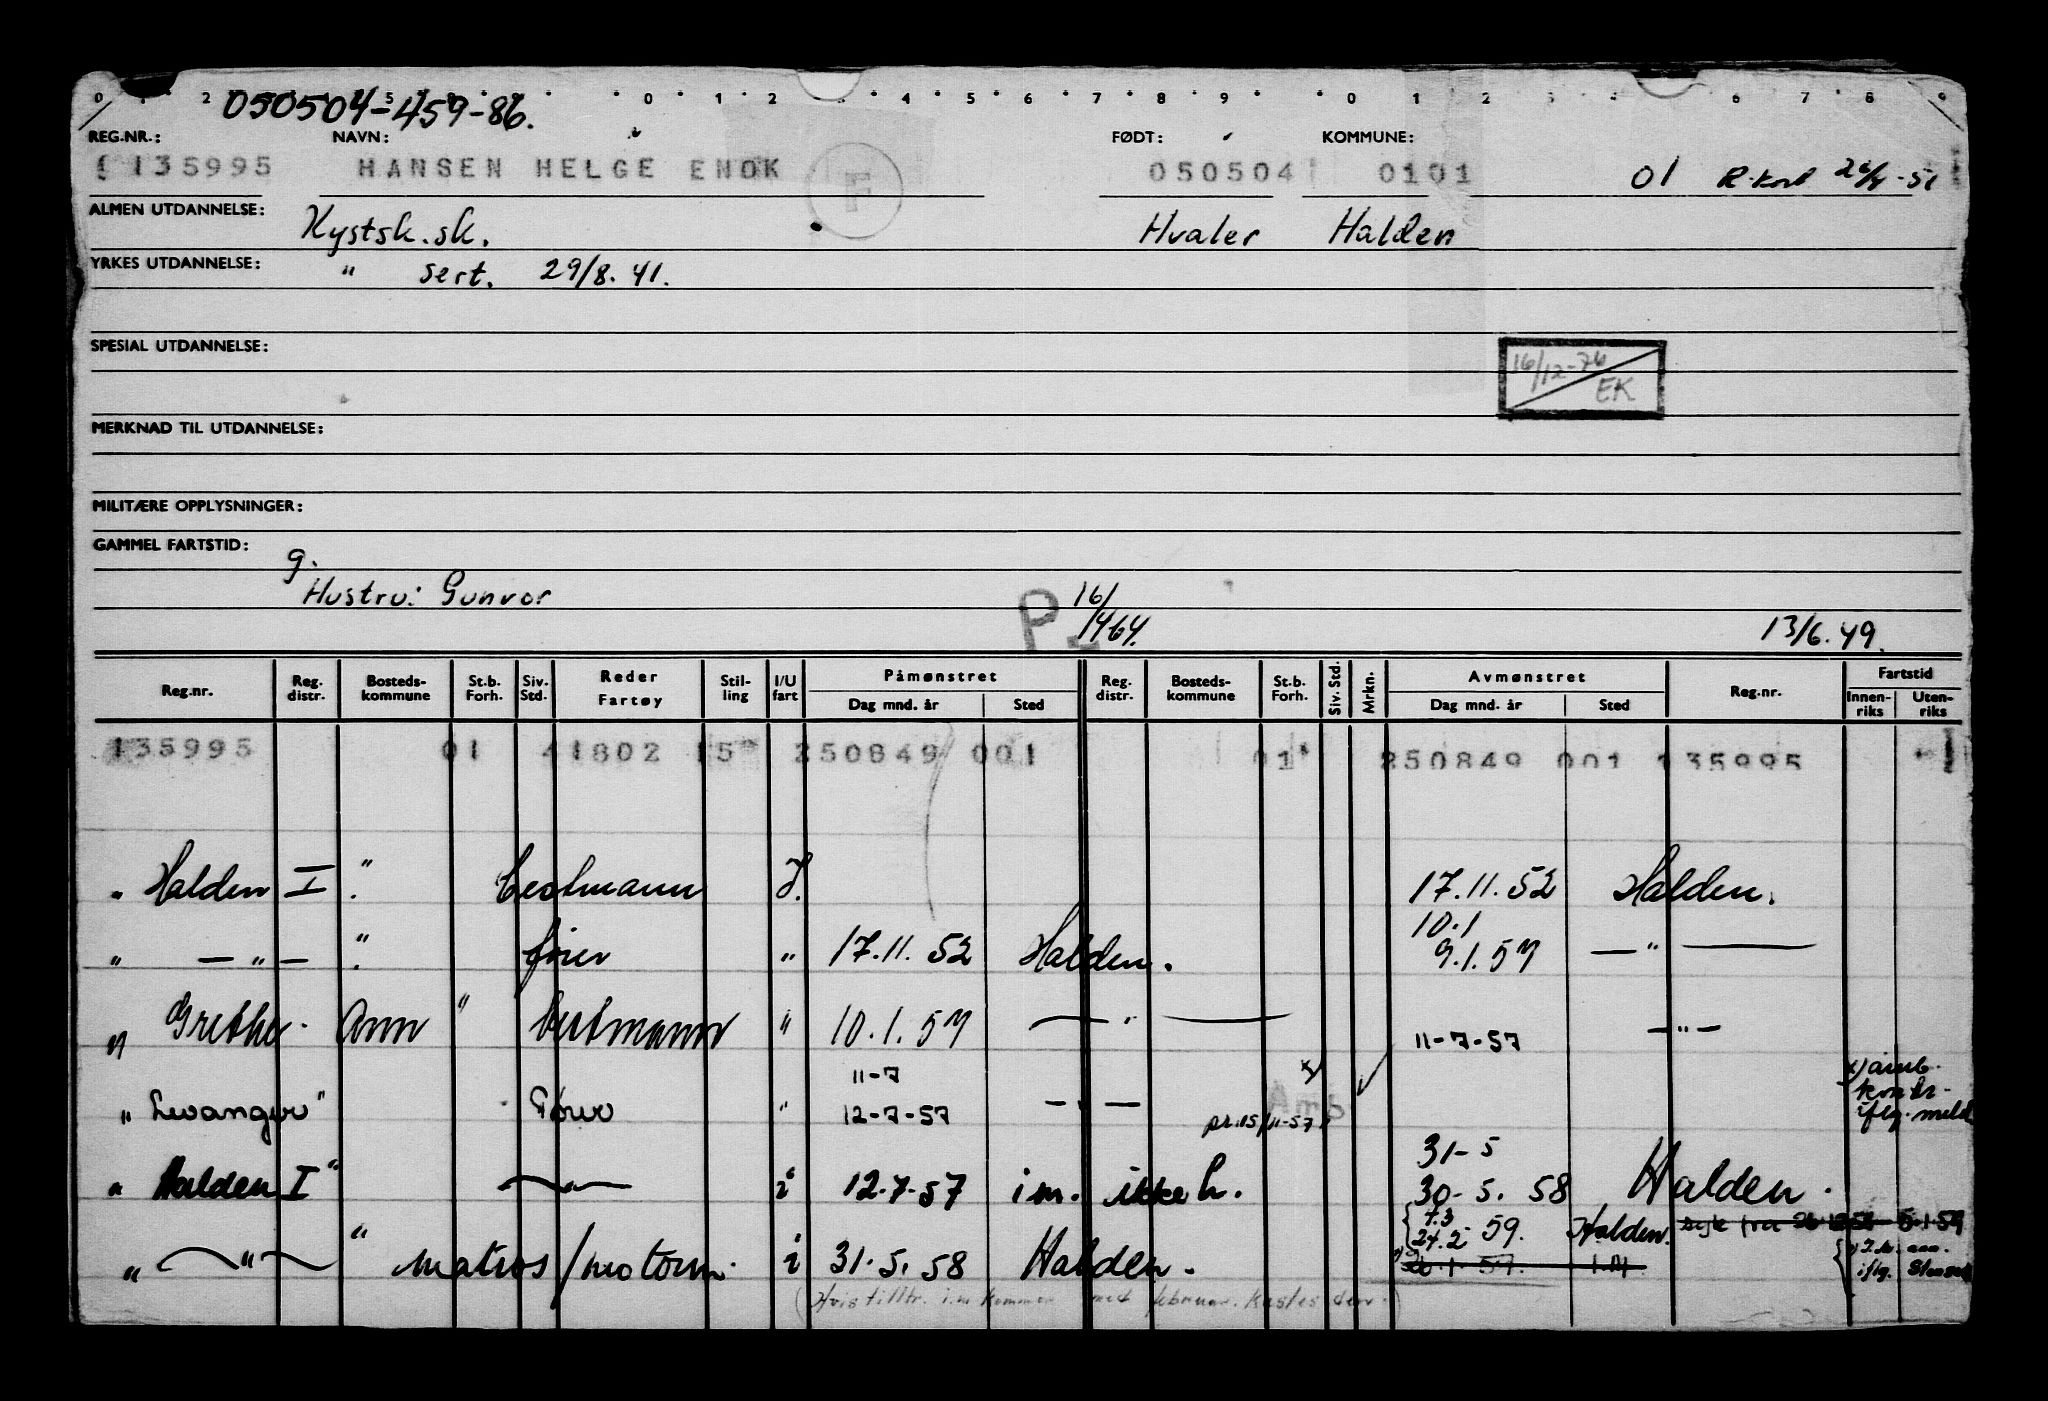 050504-459-86.
REG.NR.: NAVN: FØDT: KOMMUNE:
135995 HANSEN HELGE ENOK 050504 0101 01 R-kort
F
ALMEN UTDANNELSE: Kystsk. sk. Hvaler Halden
YRKES UTDANNELSE: " sert. 29/8. 41.
SPESIAL UTDANNELSE:
16/12-76
EK
MERKNAD TIL UTDANNELSE:
MILITÆRE OPPLYSNINGER:
GAMMEL FARTSTID:
g.
Hustru: Gunvor
P- 16/1464.
13/6.49.
Reg.nr. Reg. distr. Bosteds-kommune St.b. Forh. Siv. Std. Reder Fartøy Stil-ling I/U fart Påmønstret Dag mnd. år Sted Reg. distr. Bosteds-kommune St.b. Forh. Siv. Std. Mrkn. Avmønstret Dag mnd. år Sted Reg.nr. Fartstid Innen-riks Uten-riks
135995 01 41802 15 250849 001 01 250849 001 135995
" Halden I " Bestmann I. 17.11.52 Halden.
10.1
" — " — " fører " 17.11.52 Halden. 9.1.57 — " —
" Grethe Ann " Bestmann " 10.1.57 — " — 11-7-57 — " —
11-7
" Levanger" Fører " 12-7-57 — " — pr. 15/11-57
iflg. meld
31-5
" Halden I" — " — i 12.7.57 i m. ikke h. 30-5. 58 Halden.
4.3
24.2 59. Halden.
" — " — " matros/motorm. i 31.5.58 Halden.
(Hvis tilltr. i.m kommer med februar. kastes den.)